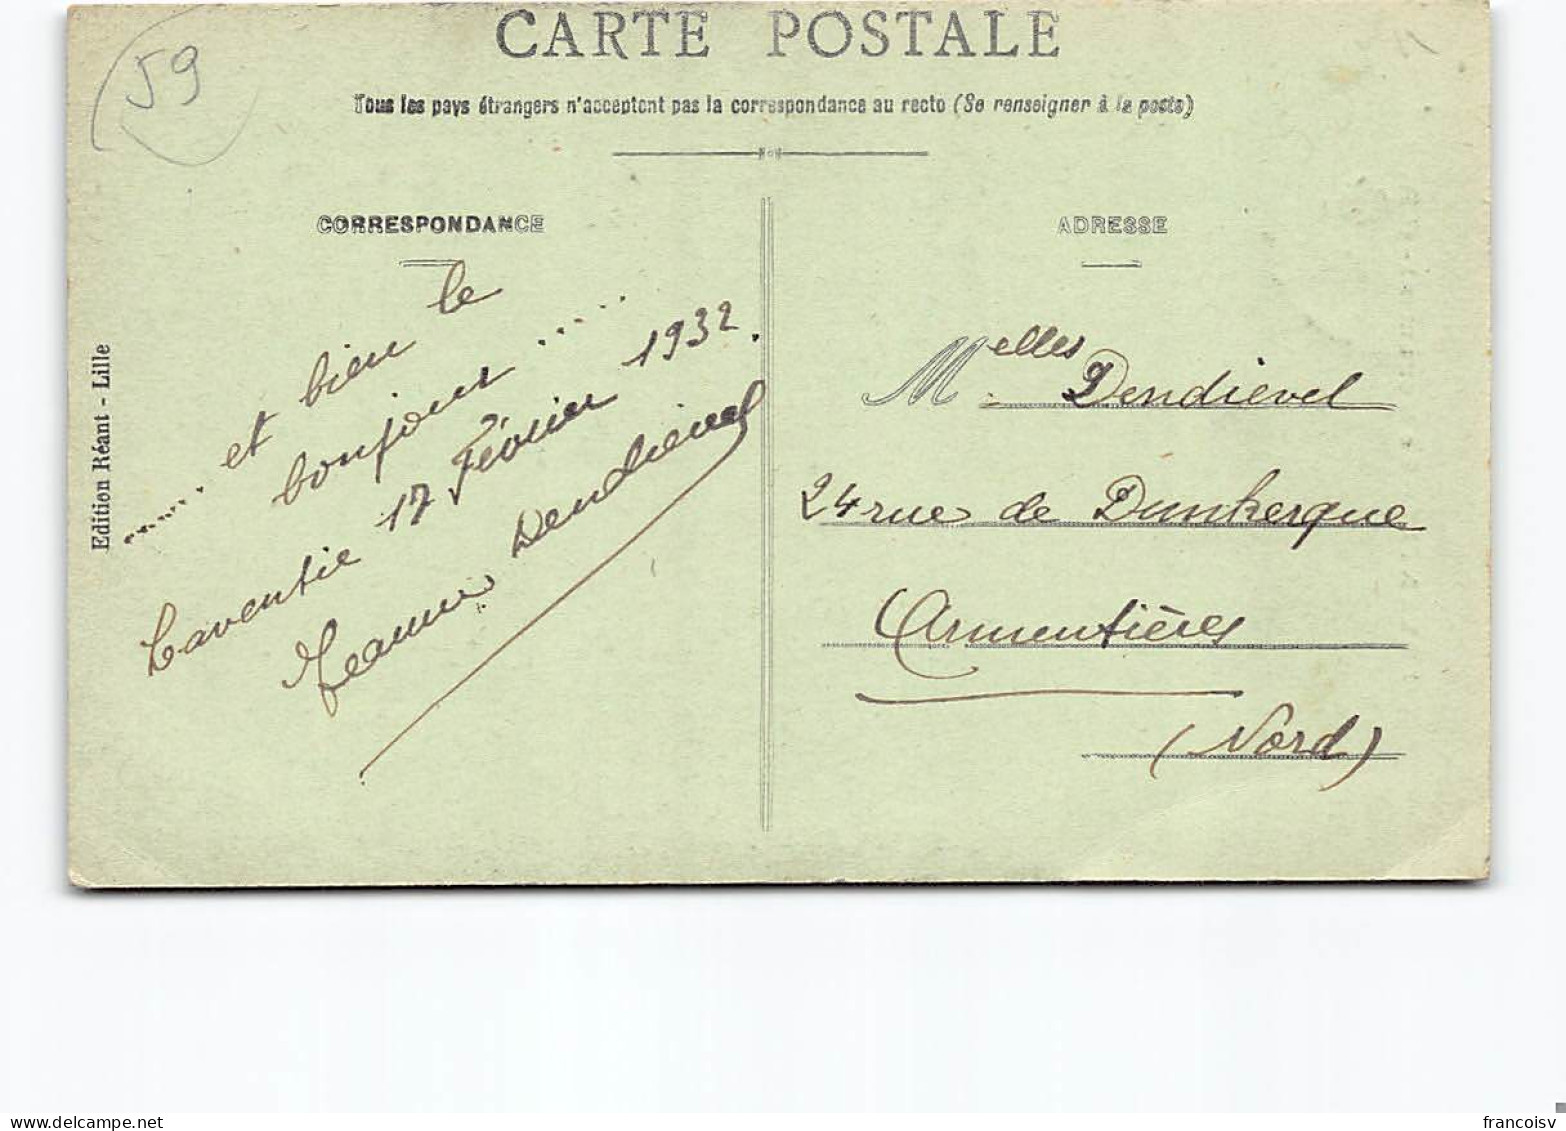 CARTE POSTALE
Tous les pays étrangers n'acceptent pas la correspondance au recto (Se renseigner à la poste)
59
CORRESPONDANCE
..... et bien le
bonjour .....
Laventie 17 Février 1932.
Jeanne Dendievel
Edition Réant - Lille
ADRESSE
Melles Dendievel
24 rue de Dunkerque
Armentières
(Nord)
delcampe.net
francoisv